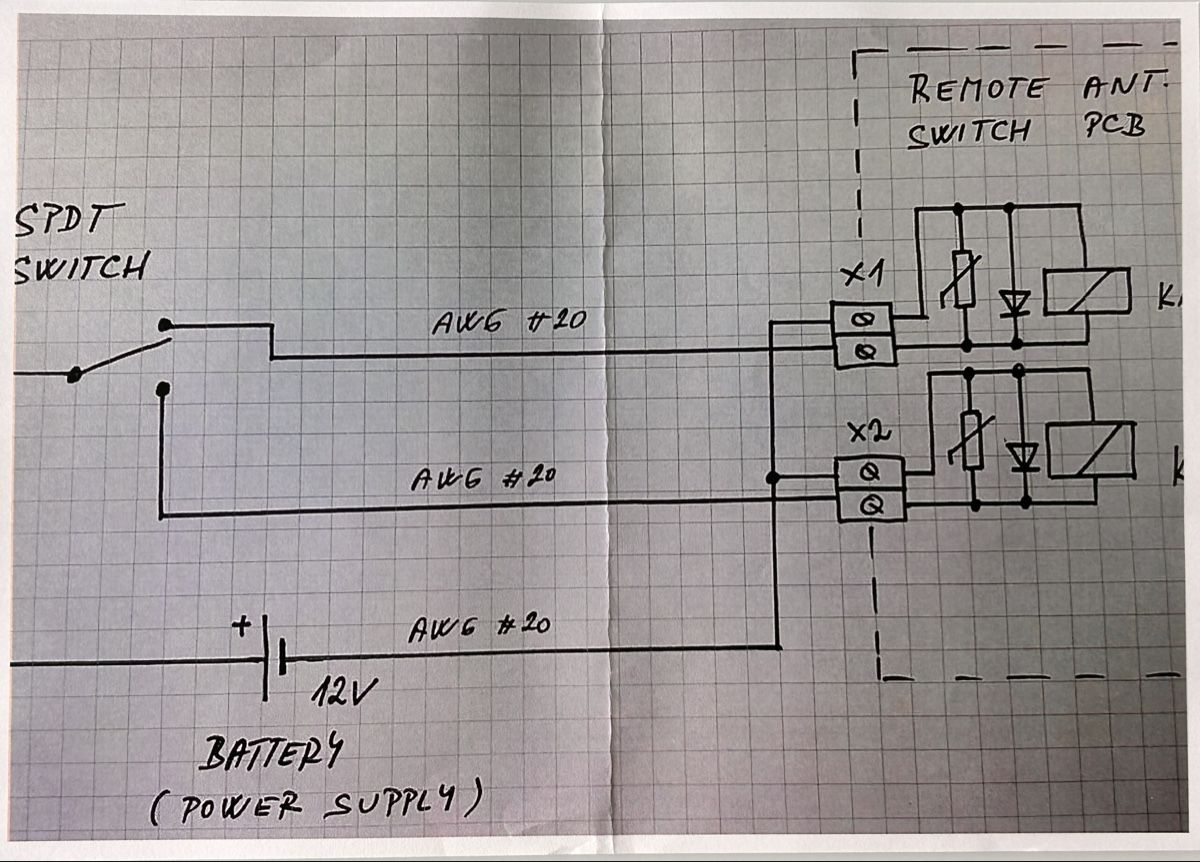 REMOTE ANT.
SWITCH PCB
SPDT
SWITCH
X1
AWG #20
X2
AWG #20
+
AWG #20
12V
BATTERY
(POWER SUPPLY)